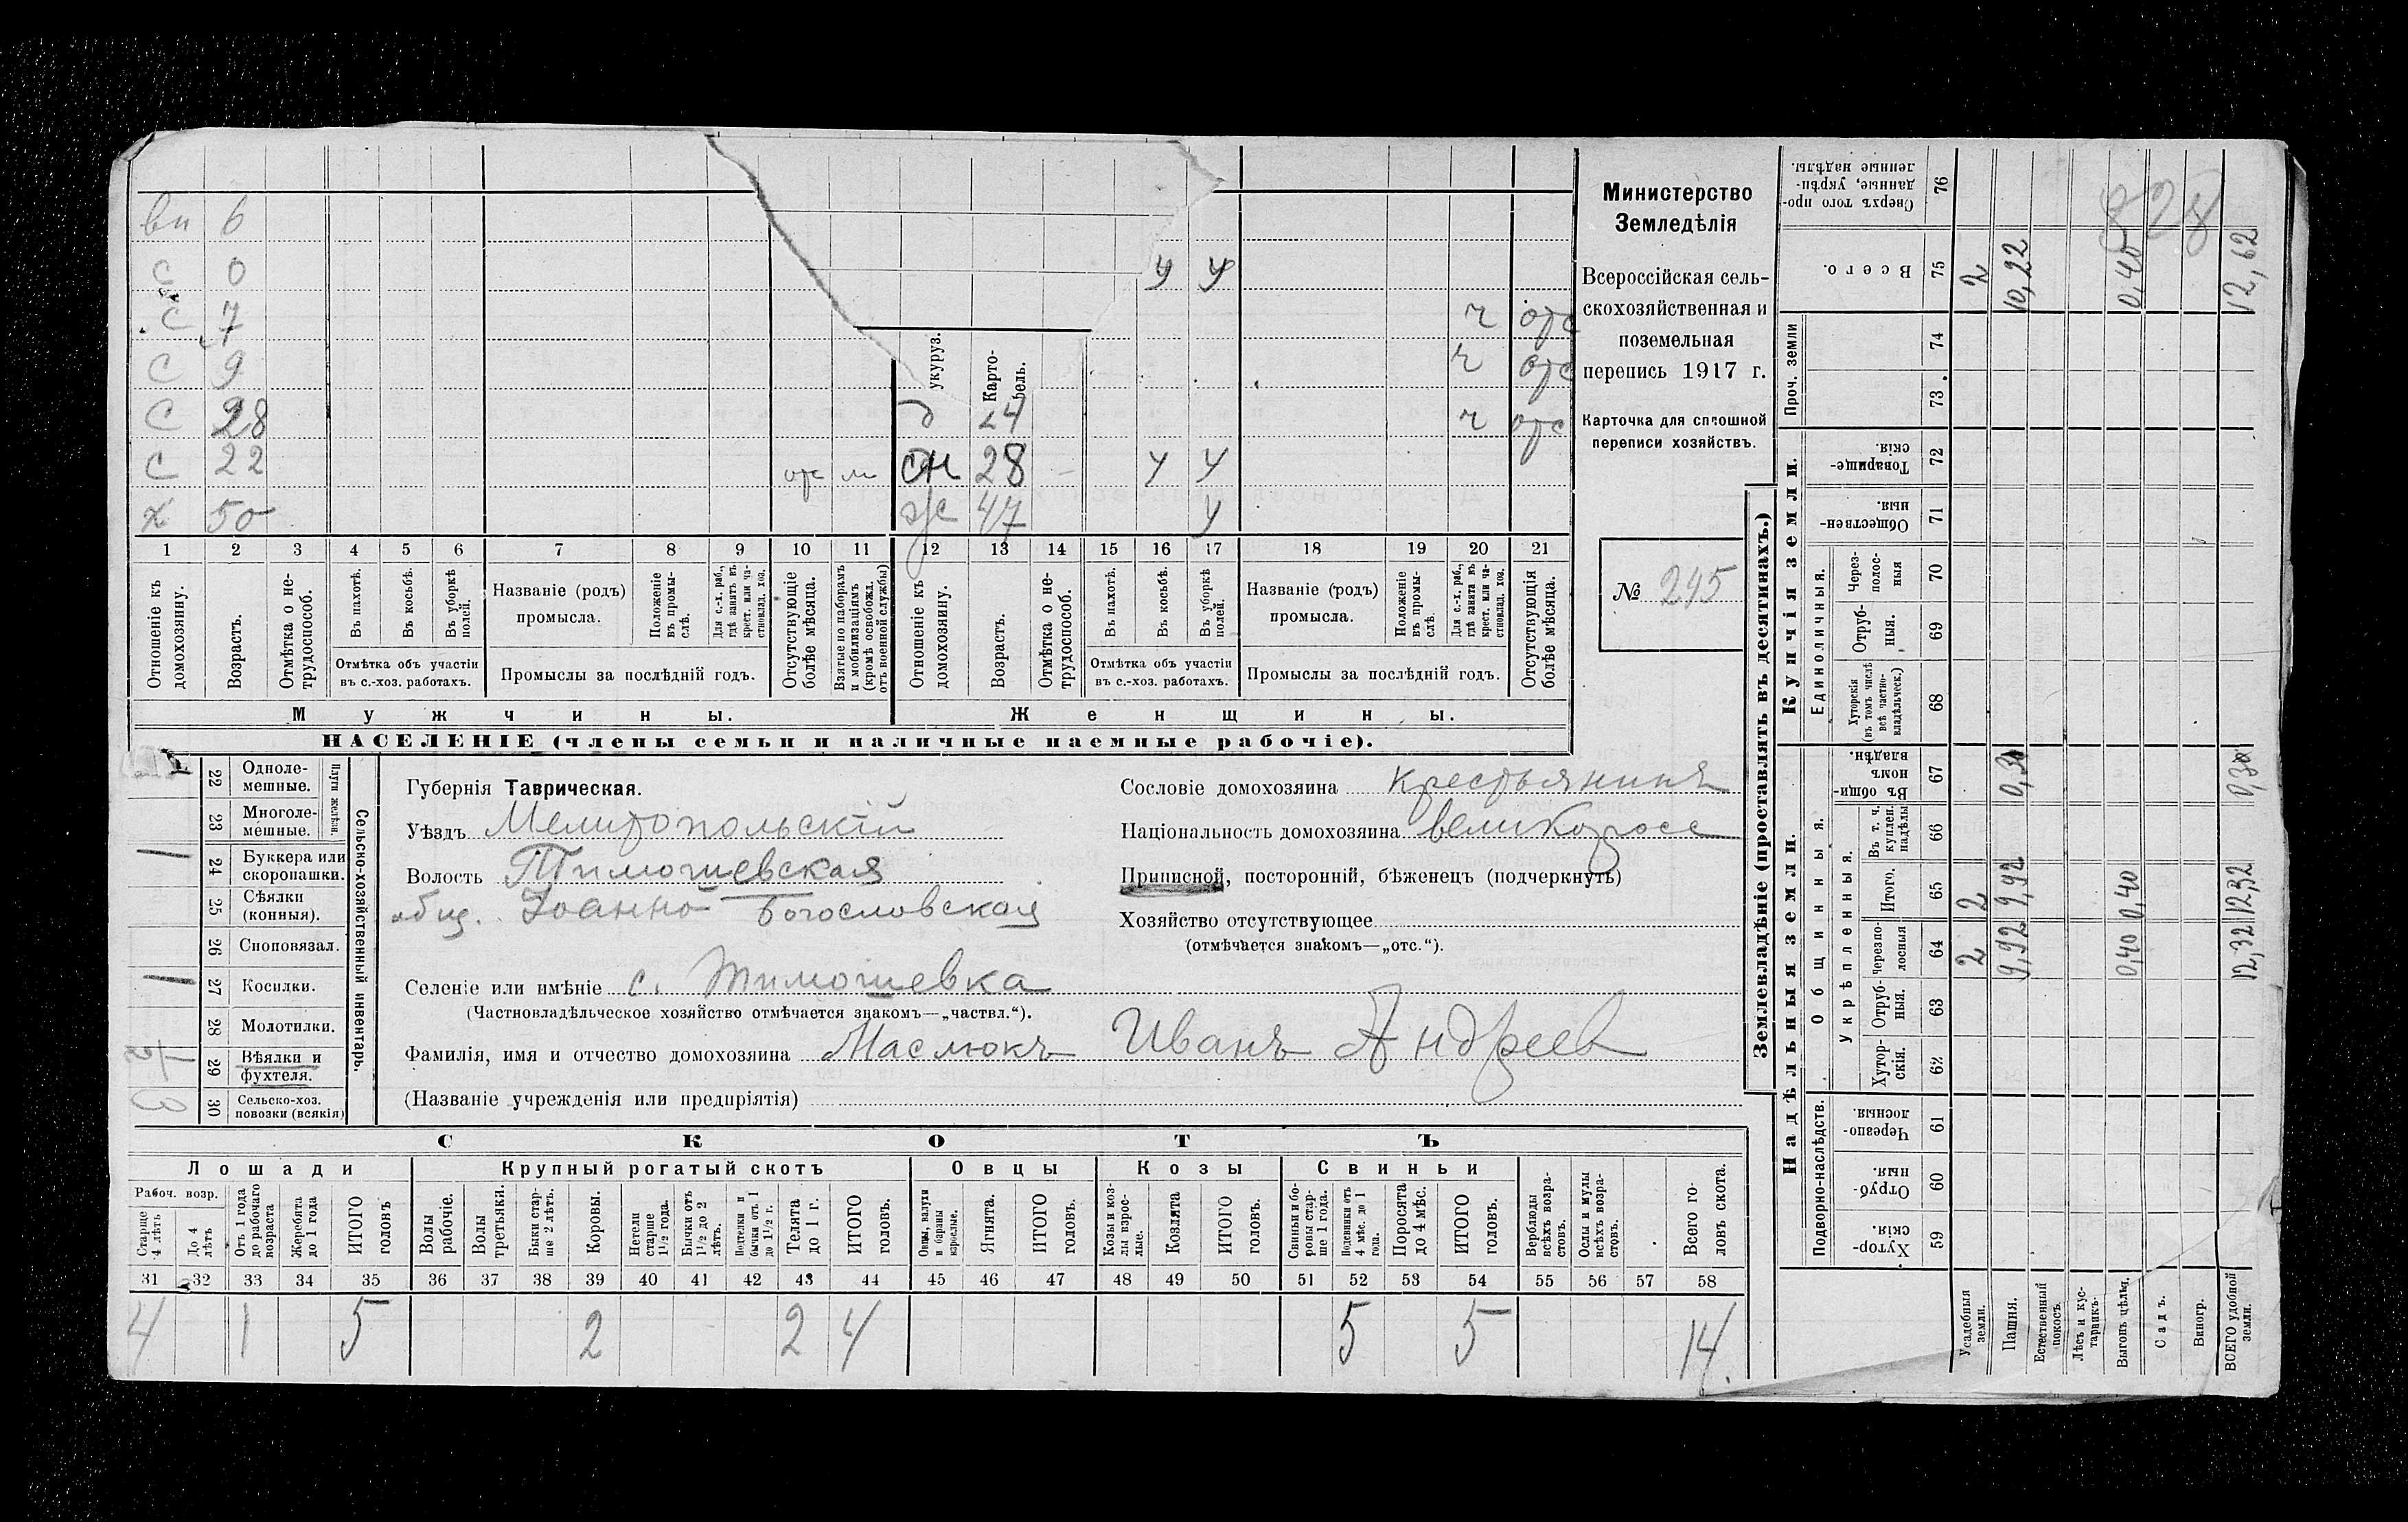 вн 6
с 0 у у
с 7 ч отс
с 9 ч отс
укуруз. Карто-
фель.
с 28 24 ч отс
с 22 отс м сн 28 у у
х 50 ж 47 у
1 2 3 4 5 6 7 8 9 10 11 12 13 14 15 16 17 18 19 20 21
Отношеніе къ домохозяину.
Возрастъ.
Отмѣтка о не-трудоспособ.
Въ пахотѣ.
Въ косьбѣ.
Въ уборкѣ полей.
Отмѣтка объ участіи
въ с.-хоз. работахъ.
Названіе (родъ)
промысла.
Положеніе въ промы-слѣ.
Для с.-х. раб., гдѣ занятъ въ крест. или ча-стновлад. хоз.
Промыслы за послѣдній годъ.
Отсутствующіе болѣе мѣсяца.
Взятые по наборамъ и мобилизаціямъ (кромѣ освобожд. отъ военной службы)
Отношеніе къ домохозяину.
Возрастъ.
Отмѣтка о не-трудоспособ.
Въ пахотѣ.
Въ косьбѣ.
Въ уборкѣ полей.
Отмѣтка объ участіи
въ с.-хоз. работахъ.
Названіе (родъ)
промысла.
Положеніе въ промы-слѣ.
Для с.-х. раб., гдѣ занята въ крест. или ча-стновлад. хоз.
Промыслы за послѣдній годъ.
Отсутствующія болѣе мѣсяца.
Мужчины. Женщины.
НАСЕЛЕНІЕ (члены семьи и наличные наемные рабочіе).
Министерство
Земледѣлія
Всероссійская сель-
скохозяйственная и
поземельная
перепись 1917 г.
Карточка для сплошной
переписи хозяйствъ.
№ 245
1 22 Одноле-мешные.
23 Многоле-мешные.
Плуги желѣзн.
1 24 Буккера или скоропашки.
25 Сѣялки (конныя).
26 Сноповязал.
1 27 Косилки.
28 Молотилки.
29 Вѣялки и фухтеля.
3 30 Сельско-хоз. повозки (всякія)
Сельско-хозяйственный инвентарь.
Губернія Таврическая.
Уѣздъ Мелитопольскій
Волость Тимошевская
общ. Іоанно-Богословская
Селеніе или имѣніе с. Тимошевка
(Частновладѣльческое хозяйство отмѣчается знакомъ—„частвл.“).
Фамилія, имя и отчество домохозяина Маслюкъ Иванъ Андреев
(Названіе учрежденія или предпріятія)
Сословіе домохозяина крестьянинъ
Національность домохозяина великоросс
Приписной, посторонній, бѣженецъ (подчеркнуть)
Хозяйство отсутствующее
(отмѣчается знакомъ—„отс.“).
СКОТЪ
Лошади Крупный рогатый скотъ Овцы Козы Свиньи
Рабоч. возр.
Старше 4 лѣтъ
До 4 лѣтъ
Отъ 1 года до рабочаго возраста
Жеребята до 1 года
ИТОГО головъ
Волы рабочіе.
Волы третьяки.
Быки стар-ше 2 лѣтъ.
Коровы.
Нетели старше 1½ года.
Бычки отъ 1½ до 2 лѣтъ.
Подтелки и бычки отъ 1 до 1½ г.
Телята до 1 г.
ИТОГО головъ.
Овцы, валухи и бараны взрослые.
Ягнята.
ИТОГО головъ.
Козы и коз-лы взрос-лые.
Козлята
ИТОГО головъ.
Свиньи и бо-ровы стар-ше 1 года.
Подсвинки отъ 4 мѣс. до 1 года.
Поросята до 4 мѣс.
ИТОГО головъ.
Верблюды всѣхъ возра-стовъ.
Ослы и мулы всѣхъ возра-стовъ.
Всего го-ловъ скота.
31 32 33 34 35 36 37 38 39 40 41 42 43 44 45 46 47 48 49 50 51 52 53 54 55 56 57 58
4 1 5 2 2 4 5 5 14.
Землевладѣніе (проставлять въ десятинахъ.)
Надѣльныя земли. Купчія земли. Проч. земли
Подворно-наслѣдств. Общинныя. Укрѣпленныя. Единоличныя.
Хутор-скія. 59
Отруб-ныя. 60
Черезпо-лосныя. 61
Хутор-скія. 62
Отруб-ныя. 63
Черезпо-лосныя 64
Итого. 65
Въ т. ч. куплен. надѣлы 66
Въ общи-номъ владѣн. 67
Хуторскія (въ томъ числѣ всѣ частно-владѣльческ.) 68
Отруб-ныя. 69
Через-полос-ныя 70
Обществен-ныя. 71
Товарище-скія. 72
73
74
Всего. 75
Сверхъ того про-данные, укрѣп-ленные надѣлы. 76
Усадебныя земли. 2 2 2
Пашня. 9,92 9,92 0,30 10,22
Естественный покосъ.
Лѣсъ и кус-тарникъ.
Выгонъ цѣлич. 0,40 0,40 0,40
Садъ.
Виногр.
ВСЕГО удобной земли. 12,32 12,32 0,30 12,62
828